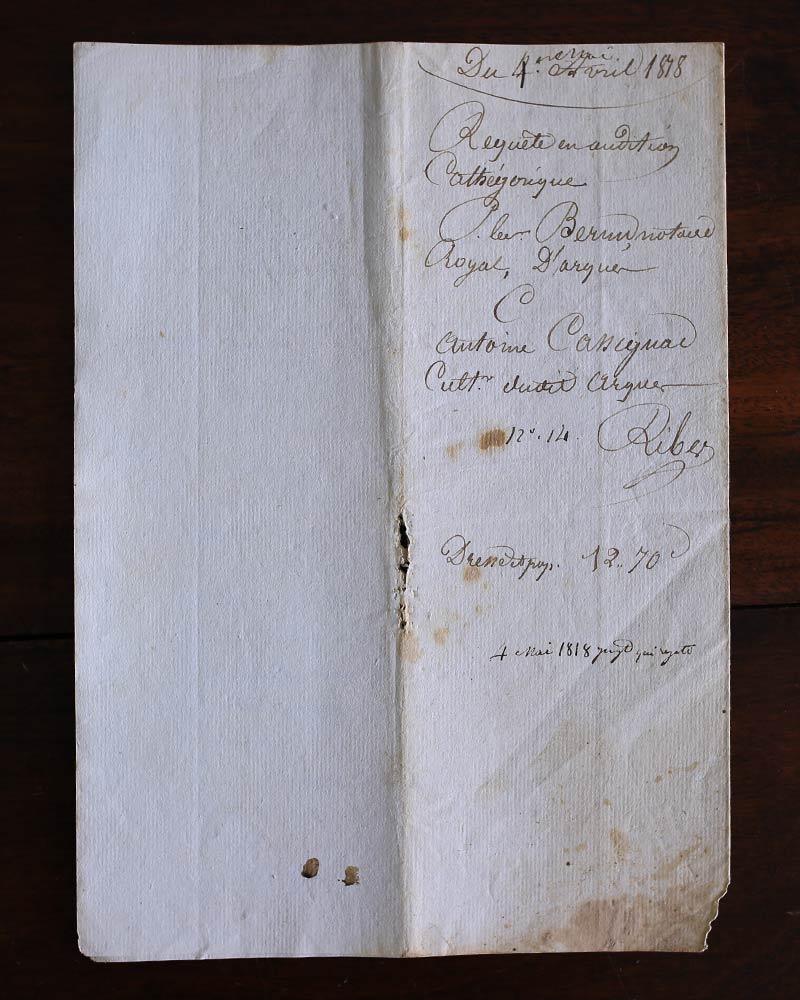 Du 4. Mai Avril 1818
Requête en audition
Cathégorique
P. le sr. notaire
Royal, D'arques
C
antoine Cassignac
Cult.r dudit arques
n°. 14. Ribes
12.. 70
4 Mai 1818